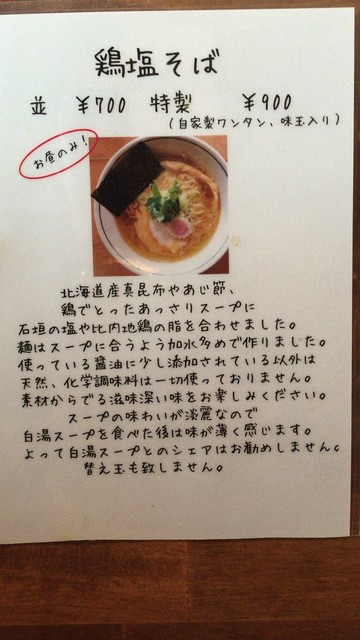 鶏塩そば
並 ¥700 特製 ¥900
(自家製ワンタン、味玉入り)
お昼のみ!
北海道産真昆布やあじ節、
鶏でとったあっさりスープに
石垣の塩や比内地鶏の脂を合わせました。
麺はスープに合うよう加水多めで作りました。
使っている醤油に少し添加されている以外は
天然、化学調味料は一切使っておりません。
素材からでる滋味深い味をお楽しみください。
スープの味わいが淡麗なので
白湯スープを食べた後は味が薄く感じます。
よって白湯スープとのシェアはお勧めしません。
替え玉も致しません。